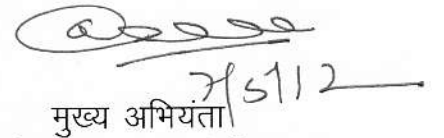 7/5/12
मुख्य अभियंता